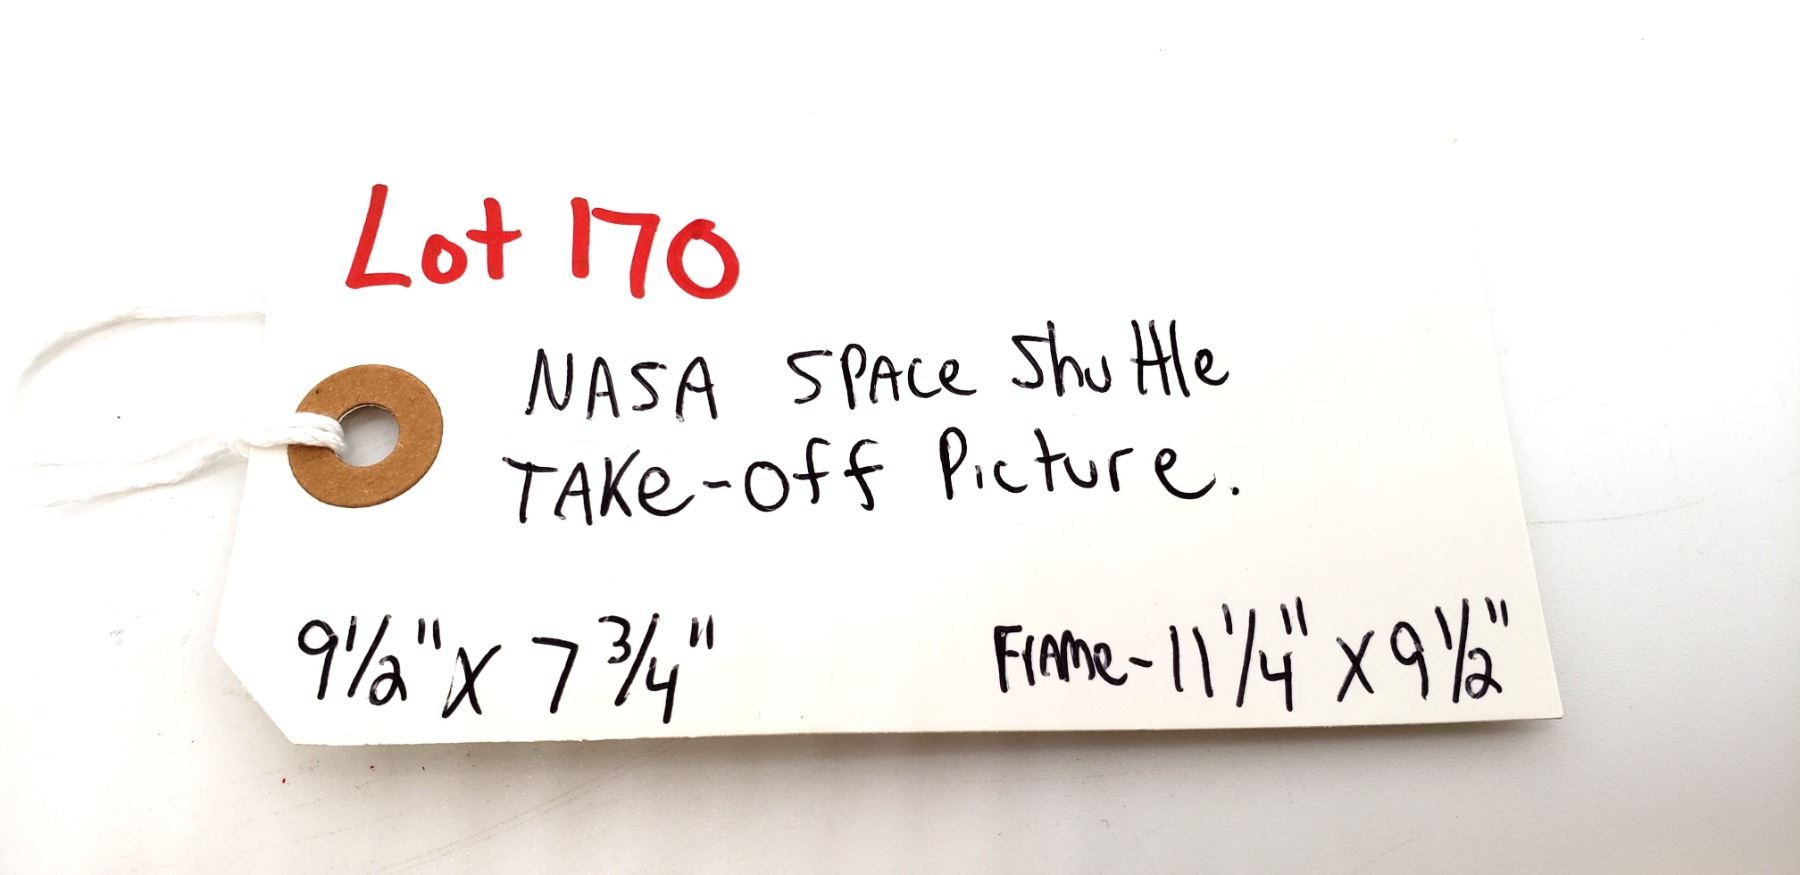 Lot 170
NASA SPACe Shuttle
TAKe-off Picture.
9 1/2" X 7 3/4" FrAme-11 1/4" X 9 1/2"